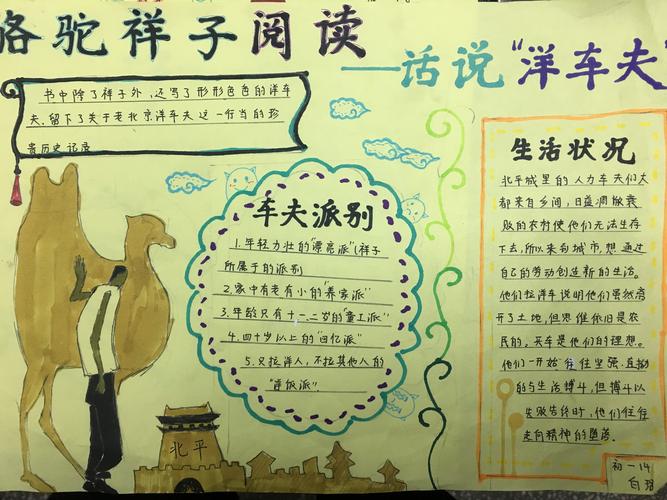 骆驼祥子阅读
—话说"洋车夫"
书中除了祥子外，还写了形形色色的洋车
夫.留下了关于老北京洋车夫这一行当的珍
贵历史记录
车夫派别
1.年轻力壮的"漂亮派"(祥子
所属于的派别
2.家中有老有小的"养家派"
3.年龄只有十一.二岁的"童工派"
4.四十岁以上的"回忆派"
5.只拉洋人，不拉其他人的
派".
生活状况
北平城里的人力车夫们大
都来自乡间，日益凋敝衰
败的农村使他们无法生存
下去，所以来到城市，想通过
自己的劳动创造新的生活。
他们拉洋车说明他们虽然离
开了土地，但思维依旧是农
民的。买车是他们的理想。
他们一开始往往坚强.
的与生活搏斗，但搏斗以
失败告终时，他们往往
走向精神的堕落。
北平
初一14
白